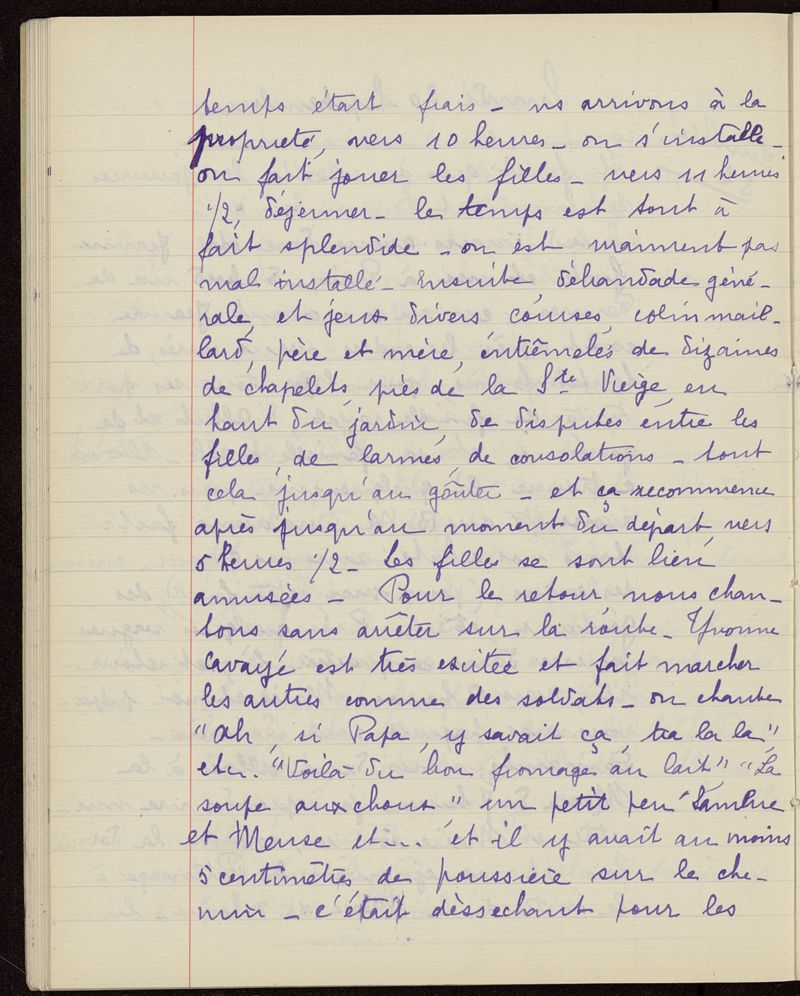 temps était frais – ns arrivons à la
propriété, vers 10 heures – on s'installe –
on fait jouer les filles – vers 11 heures
1/2, déjeuner – le temps est tout à
fait splendide – on est vraiment pas
mal installé – Ensuite débandade géné-
rale, et jeux divers, courses, colin mail-
lard, père et mère, entremêlés de dizaines
de chapelets, près de la Ste Vierge, en
haut du jardin, de disputes entre les
filles, de larmes, de consolations – tout
cela jusqu'au goûter – et ça recommence
après jusqu'au moment du départ, vers
5 heures 1/2 – les filles se sont bien
amusées – Pour le retour nous chan-
tons sans arrêter sur la route – Yvonne
Cavayé est très excitée et fait marcher
les autres comme des soldats – on chante
"Ah, si Papa, y savait ça, tra la la",
etc.. "Voilà du bon fromage au lait", "La
soupe aux choux" un petit peu "Sambre
et Meuse etc... et il y avait au moins
5 centimètres de poussière sur le che-
min – c'était désséchant pour les